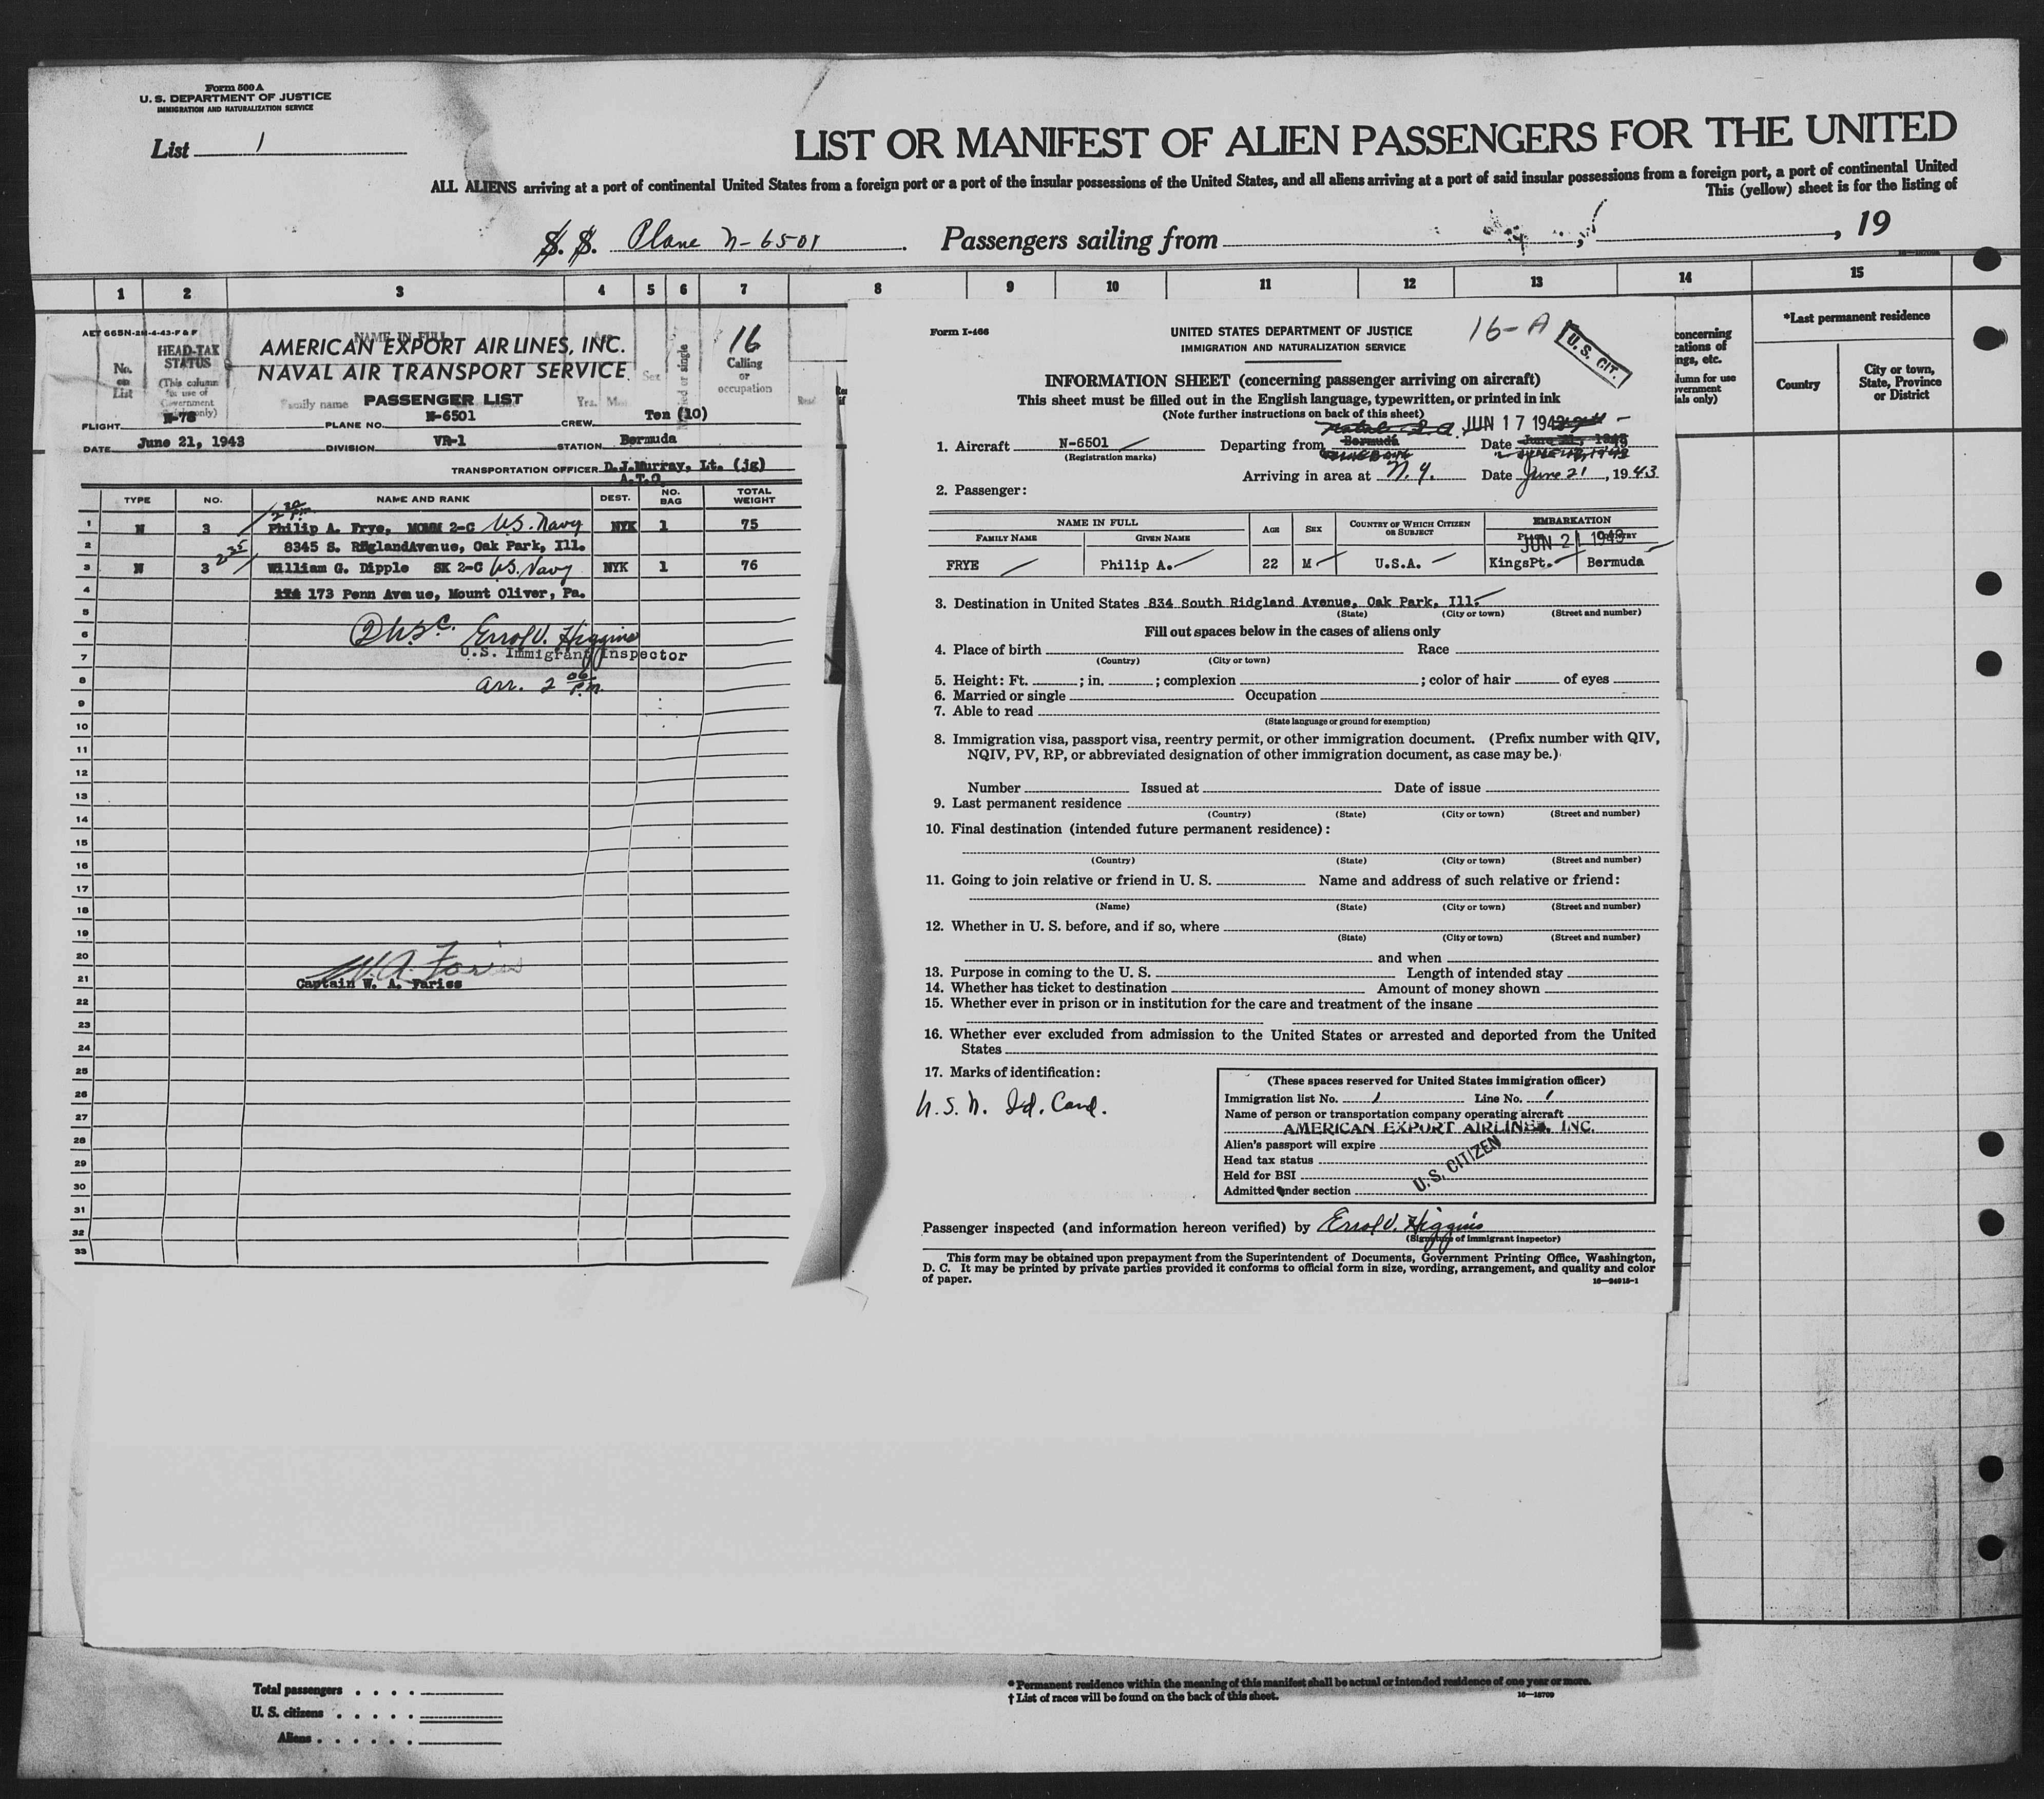 Form 500 A
U. S. DEPARTMENT OF JUSTICE
IMMIGRATION AND NATURALIZATION SERVICE
List 1
LIST OR MANIFEST OF ALIEN PASSENGERS FOR THE UNITED
ALL ALIENS arriving at a port of continental United States from a foreign port or a port of the insular possessions of the United States, and all aliens arriving at a port of said insular possessions from a foreign port, a port of continental United
This (yellow) sheet is for the listing of
S. S. Plane N-6501 Passengers sailing from , , 19
1 2 3 4 5 6 7 8 9 10 11 12 13 14 15
AET 665N-2M-4-43-F & F
No. on List
HEAD-TAX STATUS
(This column for use of Government only)
NAME IN FULL
Family name
Yrs.
Sex
Married or single
16
Calling or occupation
Read
AMERICAN EXPORT AIRLINES, INC.
NAVAL AIR TRANSPORT SERVICE
PASSENGER LIST
FLIGHT N-78 PLANE NO. N-6501 CREW Ten (10)
DATE June 21, 1943 DIVISION VR-1 STATION Bermuda
TRANSPORTATION OFFICER D.J.Murray, Lt. (jg)
A.T.O.
TYPE NO. NAME AND RANK DEST. NO. BAG TOTAL WEIGHT
1 N 3 Philip A. Frye, MOMM 2-C U.S. Navy NYK 1 75
2 8345 S. RidglandAvenue, Oak Park, Ill.
2 35
3 N 3 William G. Dipple SK 2-C U.S. Navy NYK 1 76
4 173 Penn Avenue, Mount Oliver, Pa.
5
6 Errol V. Higgins
7 U.S. Immigrant Inspector
8 arr. 2 06 P.M.
9
10
11
12
13
14
15
16
17
18
19
20 W. A. Fariss
21 Captain W. A. Fariss
22
23
24
25
26
27
28
29
30
31
32
33
Form I-466
UNITED STATES DEPARTMENT OF JUSTICE
IMMIGRATION AND NATURALIZATION SERVICE
16-A
U.S. CIT.
INFORMATION SHEET (concerning passenger arriving on aircraft)
This sheet must be filled out in the English language, typewritten, or printed in ink
(Note further instructions on back of this sheet)
Natal S.A. JUN 17 1943
1. Aircraft N-6501 Departing from Bermuda Date June 21, 1943
(Registration marks)
Arriving in area at N.Y. Date June 21, 1943
2. Passenger:
NAME IN FULL AGE SEX COUNTRY OF WHICH CITIZEN OR SUBJECT EMBARKATION
FAMILY NAME GIVEN NAME PLACE COUNTRY
JUN 21 1943
FRYE Philip A. 22 M U.S.A. KingsPt. Bermuda
3. Destination in United States 834 South Ridgland Avenue, Oak Park, Ill.
(State) (City or town) (Street and number)
Fill out spaces below in the cases of aliens only
4. Place of birth Race
(Country) (City or town)
5. Height: Ft. ; in. ; complexion ; color of hair of eyes
6. Married or single Occupation
7. Able to read
(State language or ground for exemption)
8. Immigration visa, passport visa, reentry permit, or other immigration document. (Prefix number with QIV,
NQIV, PV, RP, or abbreviated designation of other immigration document, as case may be.)
Number Issued at Date of issue
9. Last permanent residence
(Country) (State) (City or town) (Street and number)
10. Final destination (intended future permanent residence):
(Country) (State) (City or town) (Street and number)
11. Going to join relative or friend in U. S. Name and address of such relative or friend:
(Name) (State) (City or town) (Street and number)
12. Whether in U. S. before, and if so, where
(State) (City or town) (Street and number)
and when
13. Purpose in coming to the U. S. Length of intended stay
14. Whether has ticket to destination Amount of money shown
15. Whether ever in prison or in institution for the care and treatment of the insane
16. Whether ever excluded from admission to the United States or arrested and deported from the United
States
17. Marks of identification:
U.S.N. Id. Card.
(These spaces reserved for United States immigration officer)
Immigration list No. 1 Line No. 1
Name of person or transportation company operating aircraft
AMERICAN EXPORT AIRLINES, INC.
Alien's passport will expire
Head tax status
Held for BSI
Admitted under section
U.S. CITIZEN
Passenger inspected (and information hereon verified) by Errol V. Higgins
(Signature of immigrant inspector)
This form may be obtained upon prepayment from the Superintendent of Documents, Government Printing Office, Washington,
D. C. It may be printed by private parties provided it conforms to official form in size, wording, arrangement, and quality and color
of paper.
16—24915-1
concerning
ings, etc.
column for use
*Last permanent residence
Country
City or town, State, Province or District
Total passengers
U. S. citizens
Aliens
*Permanent residence within the meaning of this manifest shall be actual or intended residence of one year or more.
† List of races will be found on the back of this sheet.
16—18709